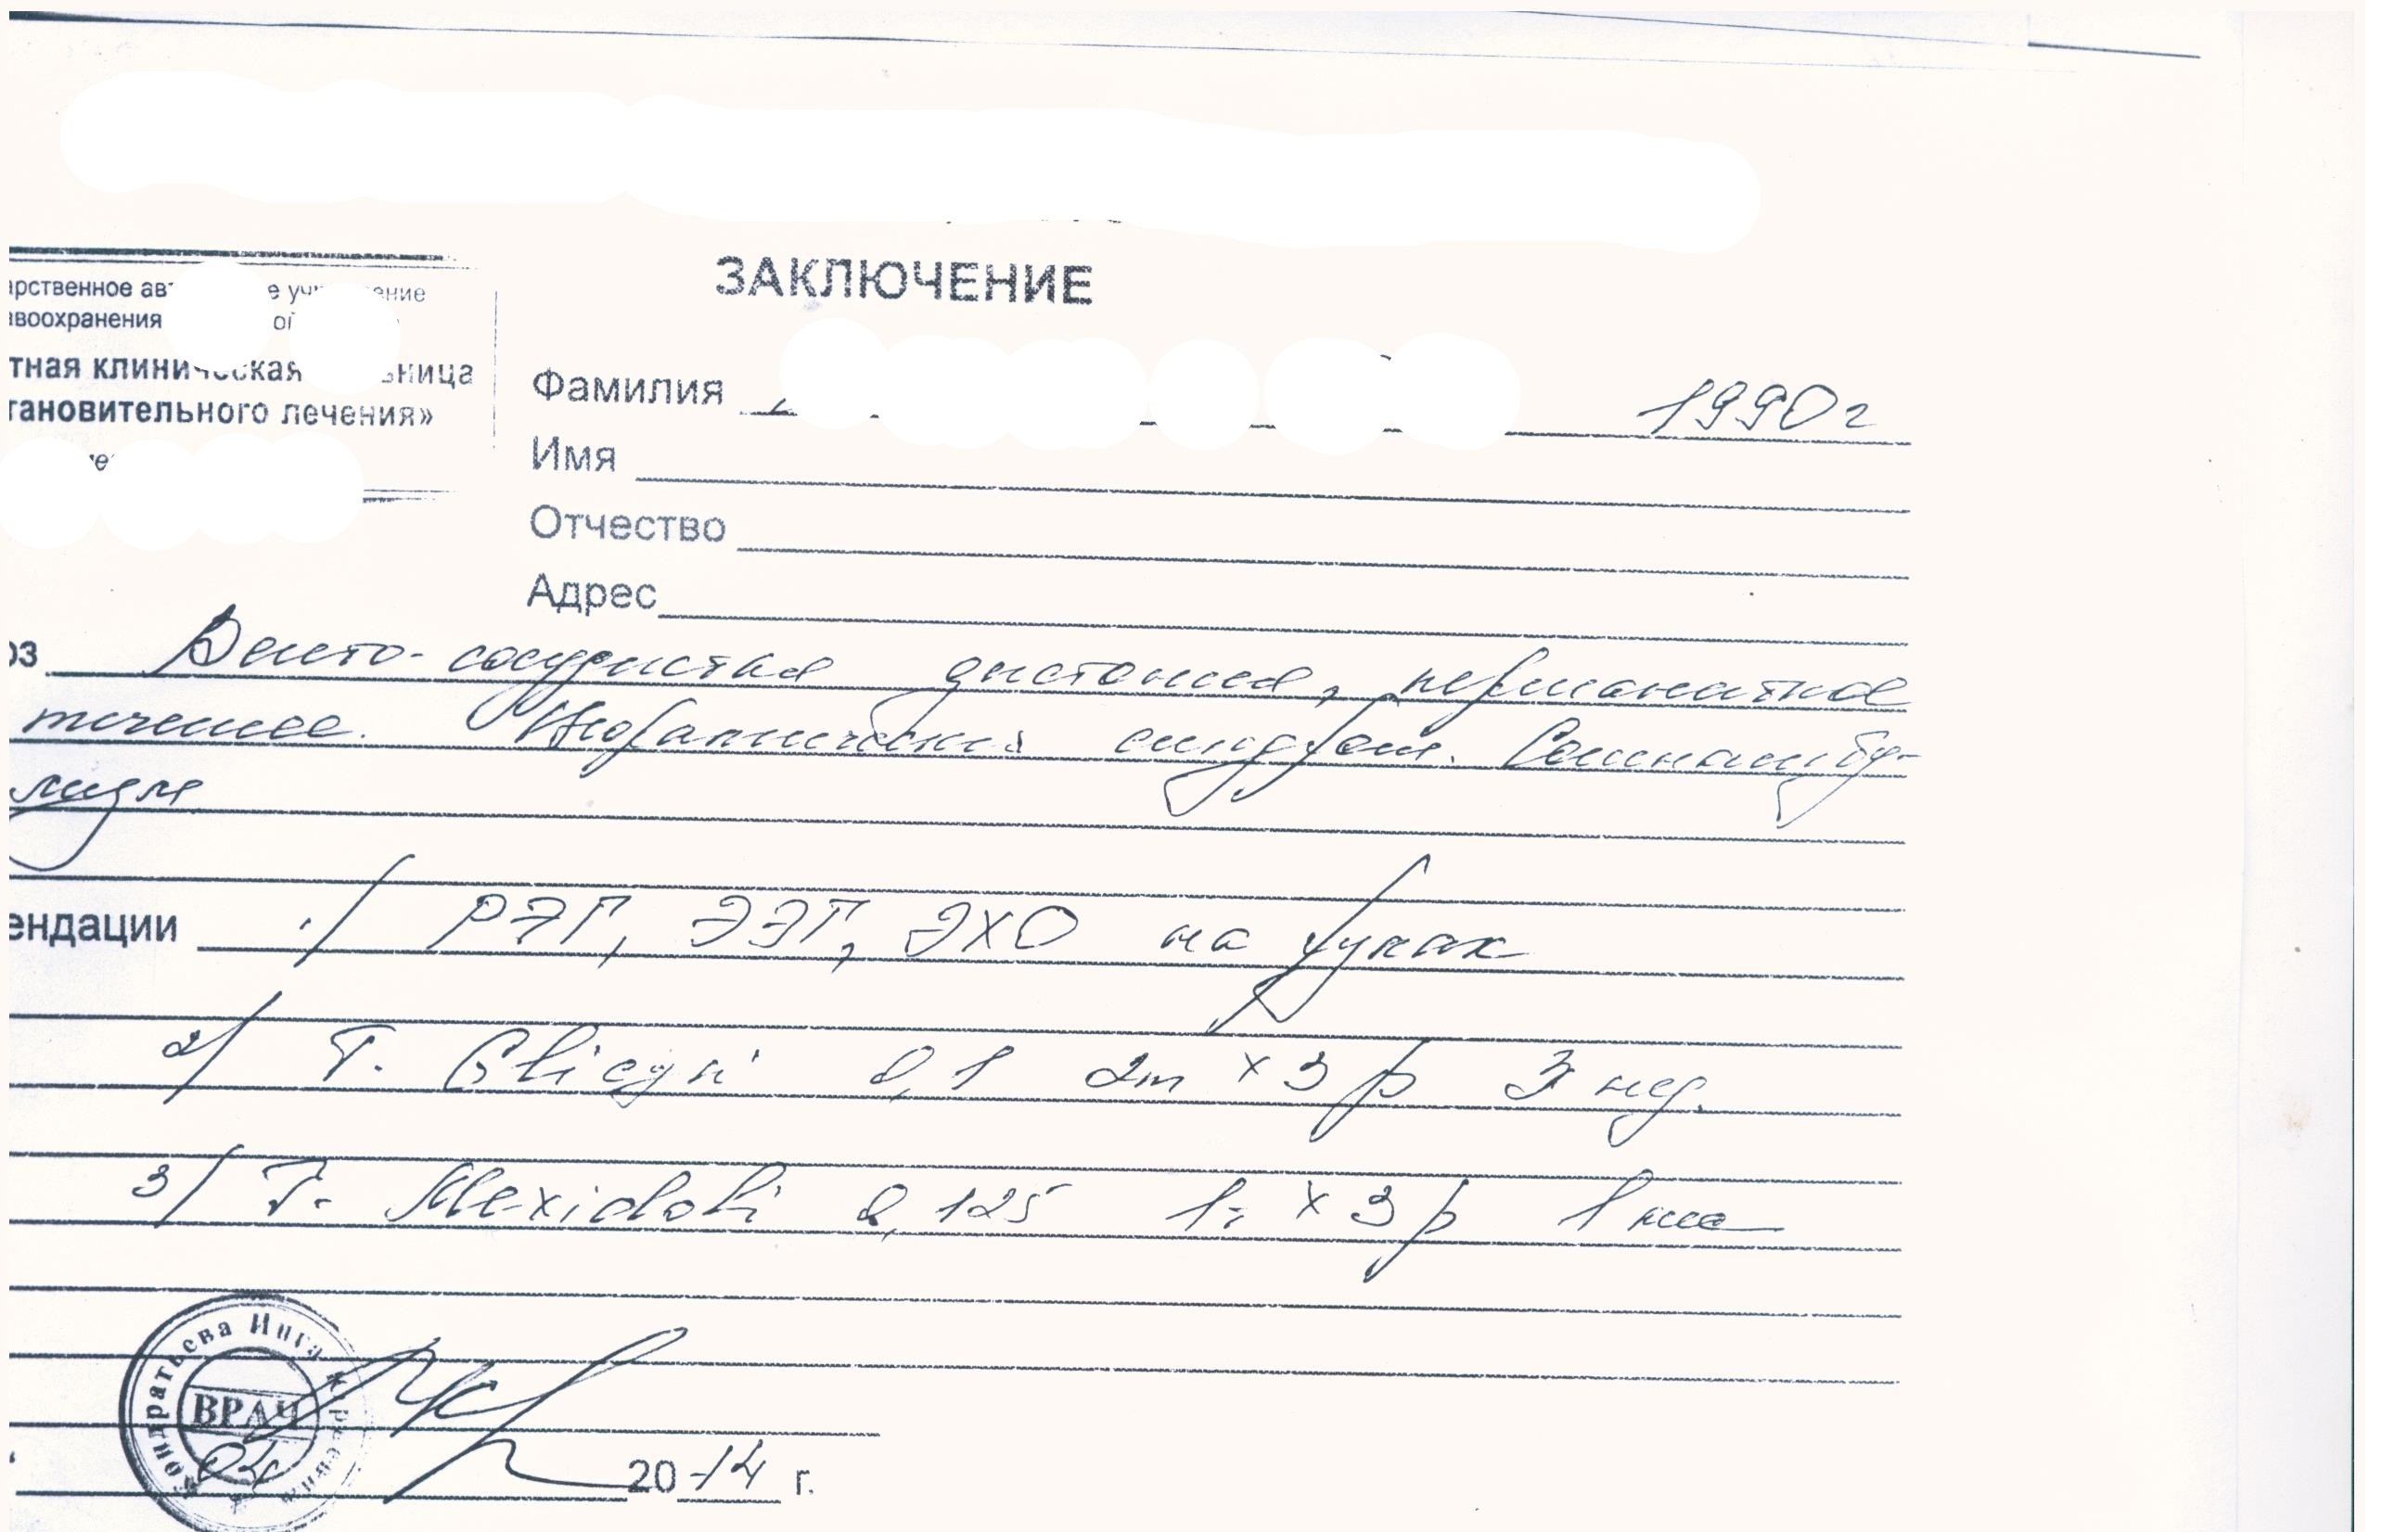 ЗАКЛЮЧЕНИЕ
арственное авт е учр ение
авоохранения ой
тная клиническая ьница
тановительного лечения»
Фамилия 1990 г
Имя
Отчество
Адрес
оз Вегето-сосудистая дистония, перманентное
течение. Цефалгический синдром. Сомнамбу-
лизм
ендации 1/ РЭГ, ЭЭГ, ЭХО на руках
2/ T. Glicyni 0,1 2т х 3 р 3 нед.
3/ T. Mexidoli 0,125 1т х 3 р 1 мес
Кондратьева Инга
ВРАЧ
04 2014 г.